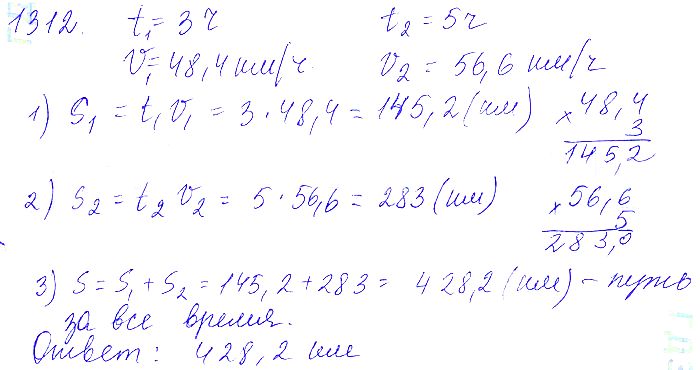 1312. t₁ = 3 ч t₂ = 5 ч
V₁ = 48,4 км/ч. V₂ = 56,6 км/ч
1) S₁ = t₁ V₁ = 3 · 48,4 = 145,2 (км) × 48,4
3
145,2
2) S₂ = t₂ V₂ = 5 · 56,6 = 283 (км) × 56,6
5
283,0
3) S = S₁ + S₂ = 145,2 + 283 = 428,2 (км) – путь
за все время.
Ответ: 428,2 км